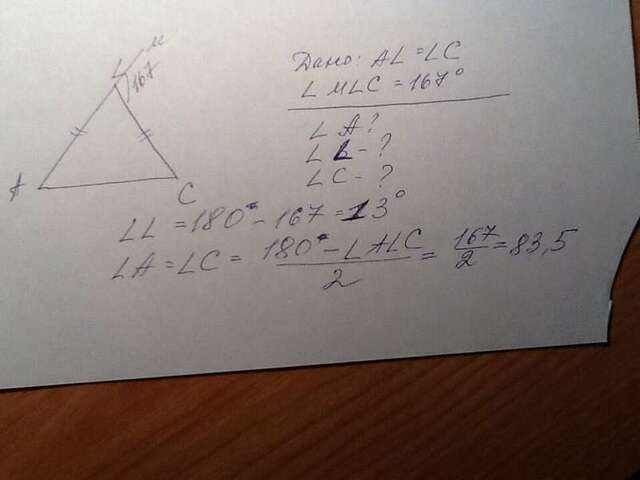 L м
167
A
C
Дано: AL = LC
∠ MLC = 167°
∠ A ?
∠ L - ?
∠ C - ?
∠L = 180° - 167 = 13°
∠A = ∠C = (180° - ∠ALC)/2 = 167/2 = 83,5